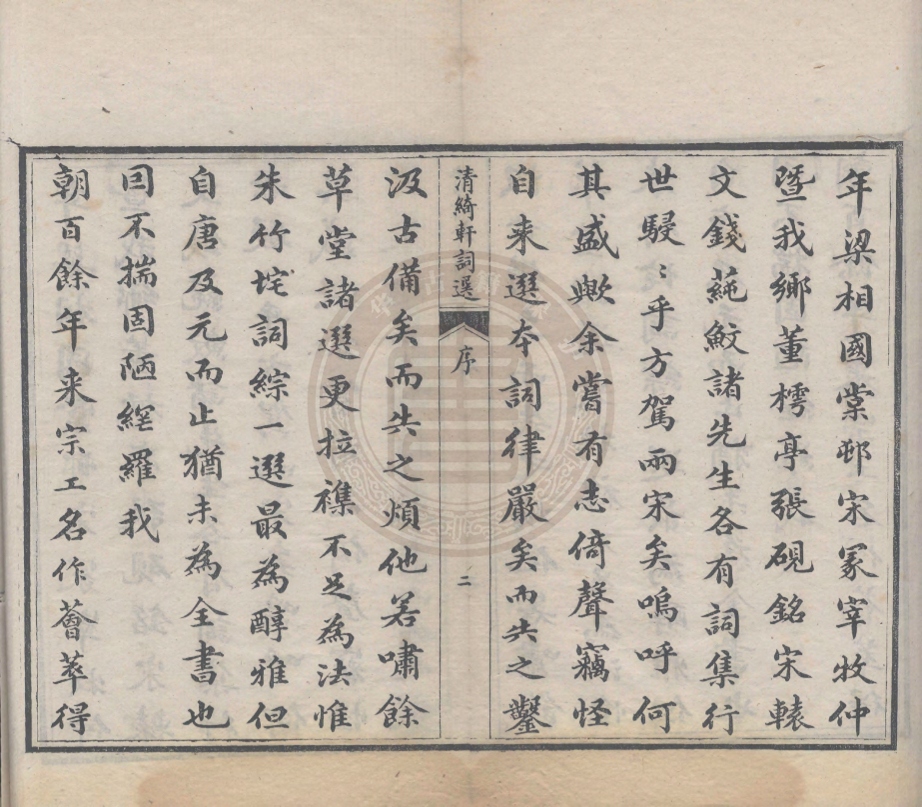 年梁相國棠邨宋冢宰牧仲
暨我鄉董樗亭張硯銘宋轅
文錢蒓鮫諸先生各有詞集行
世駸〻乎方駕兩宋矣嗚呼何
其盛歟余嘗有志倚聲竊怪
自来選本詞律嚴矣而失之鑿
清綺軒詞選
序
二
汲古備矣而失之煩他若嘯餘
草堂諸選更拉襍不足為法惟
朱竹垞詞綜一選最為醇雅但
自唐及元而止猶未為全書也
囙不揣固陋綜羅我
朝百餘年来宗工名作薈萃得